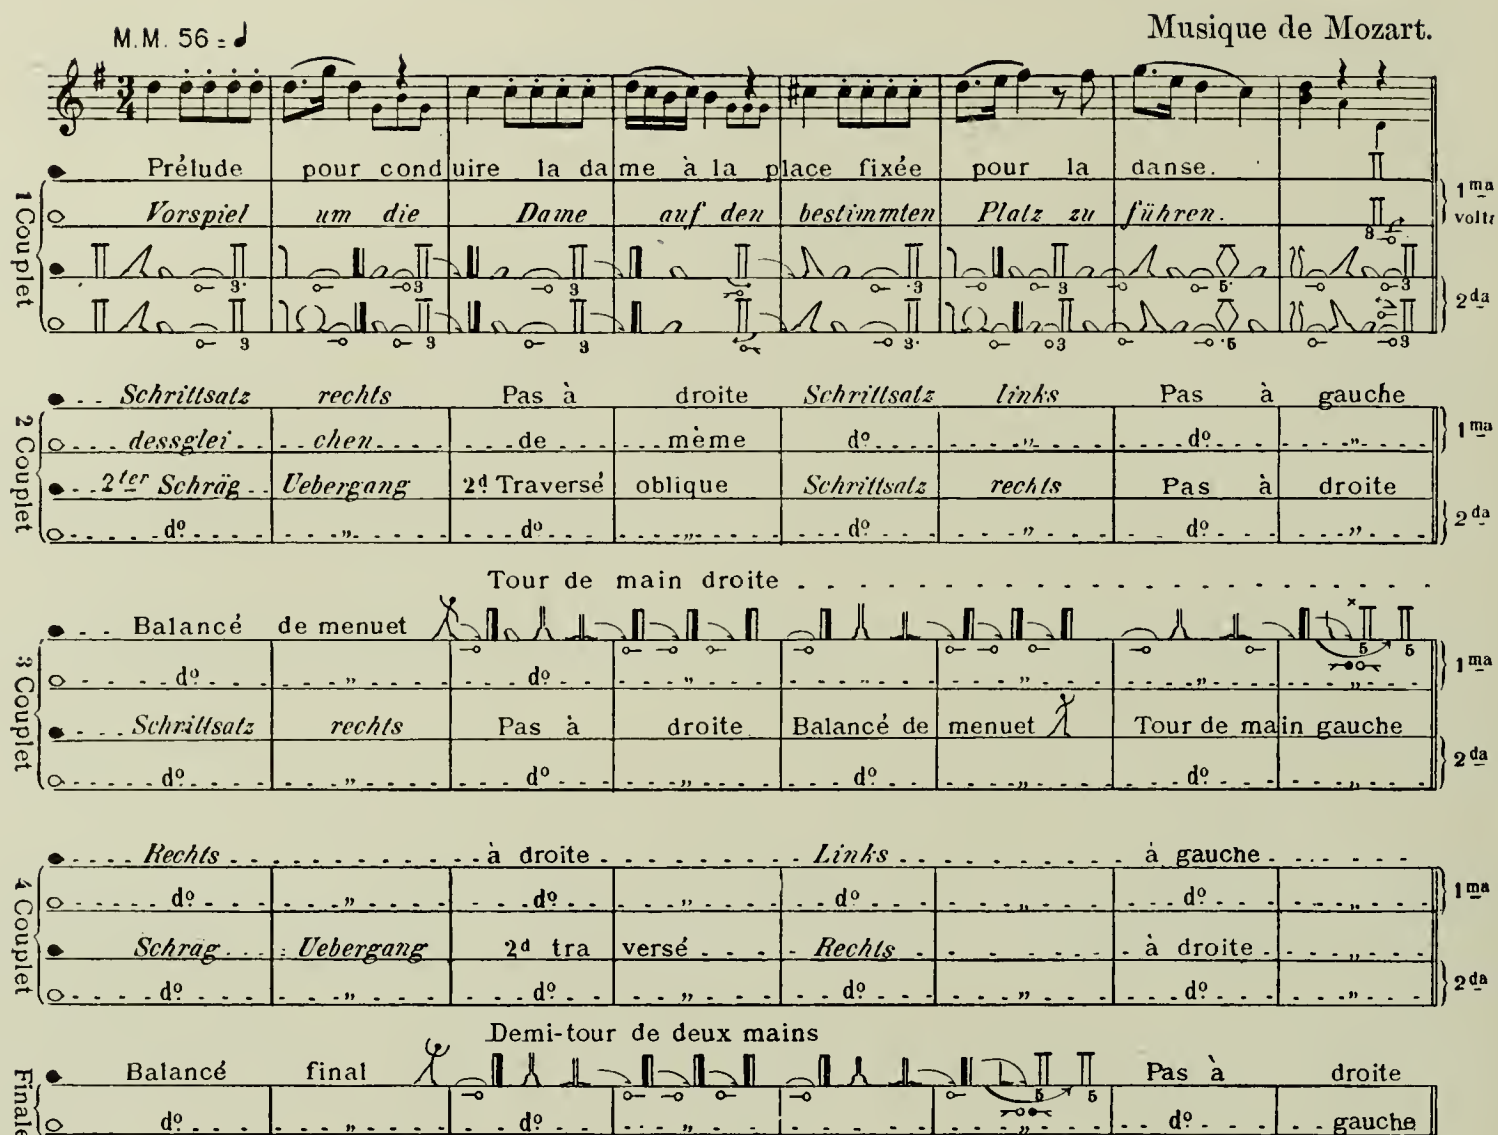 M.M. 56 = ♩
Musique de Mozart.
3/4
Prélude pour conduire la dame à la place fixée pour la danse.
1 Couplet
Vorspiel um die Dame auf den bestimmten Platz zu führen.
1ma volta
2da
Schrittsatz rechts Pas à droite Schrittsatz links Pas à gauche
2 Couplet
dessglei chen de même do „ do „
1ma
2ter Schräg Uebergang 2d Traversé oblique Schrittsatz rechts Pas à droite
do „ do „ do „ do „
2da
Tour de main droite
Balancé de menuet
3 Couplet
do „ do „ do „ „ „
1ma
Schrittsatz rechts Pas à droite Balancé de menuet Tour de main gauche
do „ do „ do „ do „
2da
Rechts à droite Links à gauche
4 Couplet
do „ do „ do „ do „
1ma
Schrag Uebergang 2d tra versé Rechts à droite „
do „ do „ do „ do „
2da
Demi-tour de deux mains
Balancé final Pas à droite
Finale
do „ do „ „ do gauche